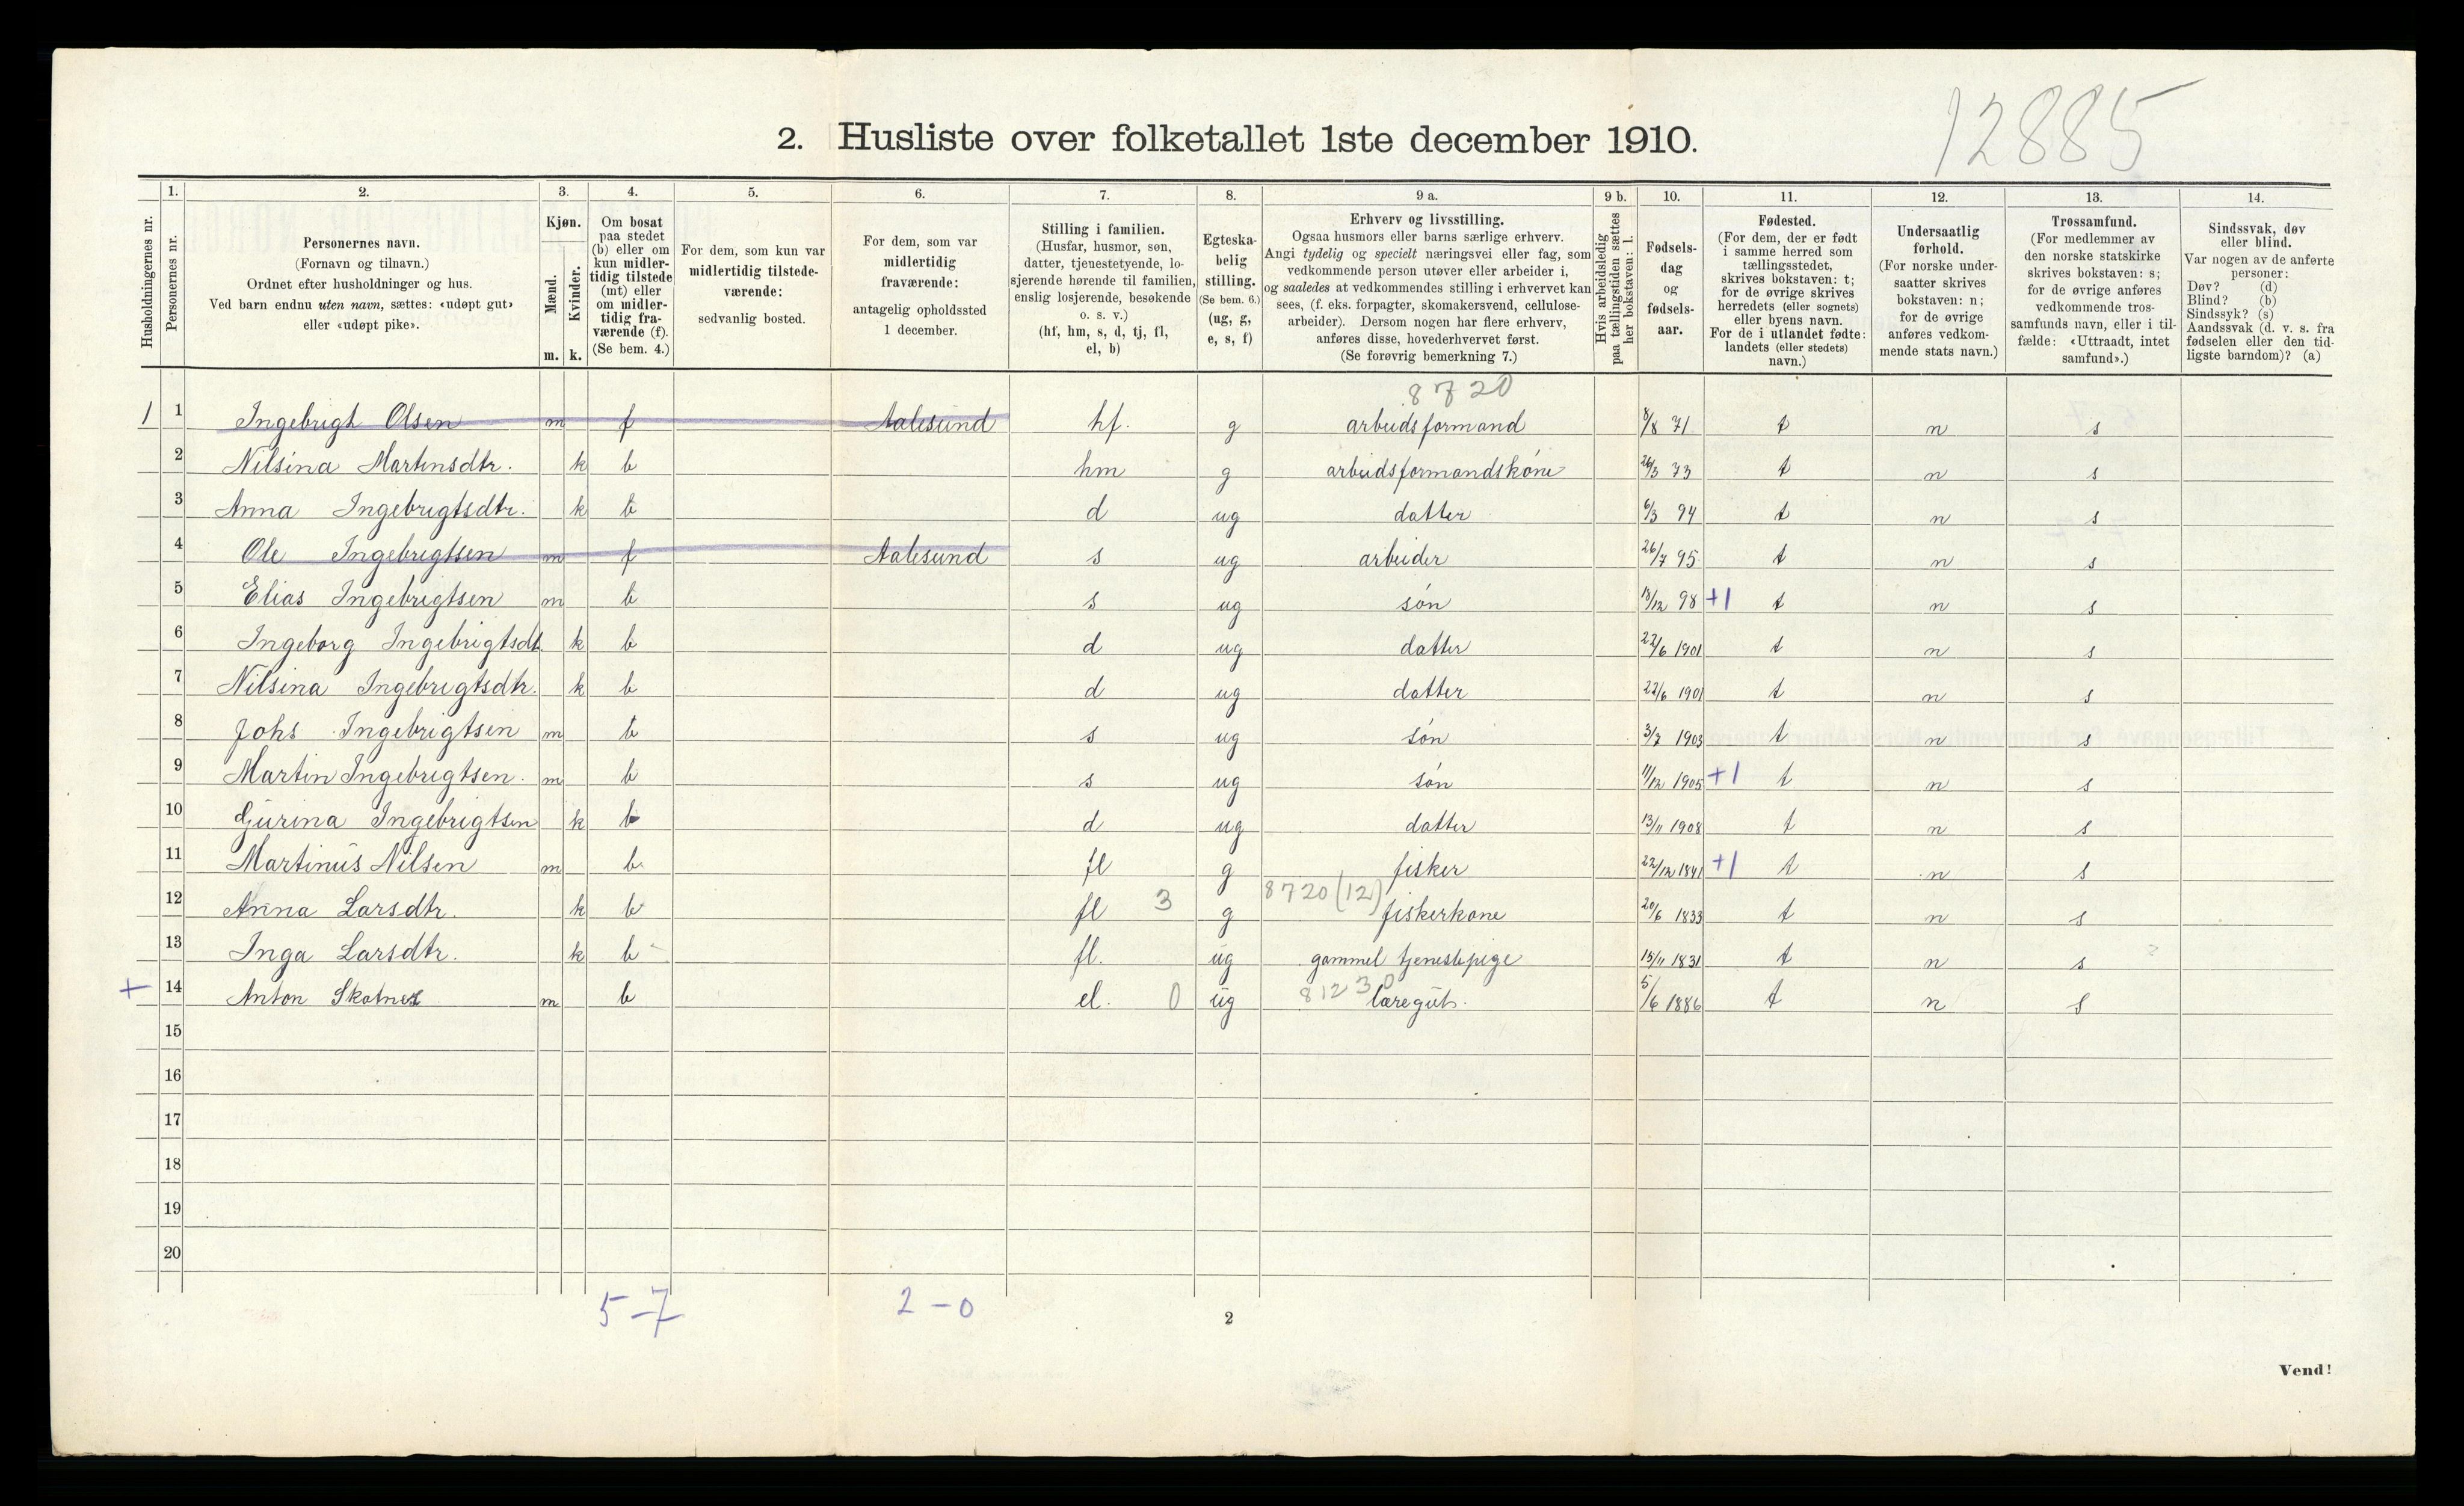 12885
2. Husliste over folketallet 1ste december 1910.
Husholdningernes nr.
1. Personernes nr.
2. Personernes navn. (Fornavn og tilnavn.) Ordnet efter husholdninger og hus. Ved barn endnu uten navn, sættes: «udøpt gut» eller «udøpt pike».
3. Kjøn. Mænd. m. Kvinder. k.
4. Om bosat paa stedet (b) eller om kun midlertidig tilstede (mt) eller om midlertidig fraværende (f). (Se bem. 4.)
5. For dem, som kun var midlertidig tilstedeværende: sedvanlig bosted.
6. For dem, som var midlertidig fraværende: antagelig opholdssted 1 december.
7. Stilling i familien. (Husfar, husmor, søn, datter, tjenestetyende, losjerende hørende til familien, enslig losjerende, besøkende o. s. v.) (hf, hm, s, d, tj, fl, el, b)
8. Egteskabelig stilling. (Se bem. 6.) (ug, g, e, s, f)
9 a. Erhverv og livsstilling. Ogsaa husmors eller barns særlige erhverv. Angi tydelig og specielt næringsvei eller fag, som vedkommende person utøver eller arbeider i, og saaledes at vedkommendes stilling i erhvervet kan sees, (f. eks. forpagter, skomakersvend, cellulosearbeider). Dersom nogen har flere erhverv, anføres disse, hovederhvervet først. (Se forøvrig bemerkning 7.)
9 b. Hvis arbeidsledig paa tællingstiden sættes her bokstaven: l.
10. Fødselsdag og fødselsaar.
11. Fødested. (For dem, der er født i samme herred som tællingsstedet, skrives bokstaven: t; for de øvrige skrives herredets (eller sognets) eller byens navn. For de i utlandet fødte: landets (eller stedets) navn.)
12. Undersaatlig forhold. (For norske undersaatter skrives bokstaven: n; for de øvrige anføres vedkommende stats navn.)
13. Trossamfund. (For medlemmer av den norske statskirke skrives bokstaven: s; for de øvrige anføres vedkommende trossamfunds navn, eller i tilfælde: «Uttraadt, intet samfund».)
14. Sindssvak, døv eller blind. Var nogen av de anførte personer: Døv? (d) Blind? (b) Sindssyk? (s) Aandssvak (d. v. s. fra fødselen eller den tidligste barndom)? (a)
8720
1 1 Ingebrigt Olsen m f Aalesund hf. g arbeidsformand 8/8 71 t n s
2 Nilsina Martinsdtr. k b hm g arbeidsformandskone 26/3 73 t n s
3 Anna Ingebrigtsdtr. k b d ug datter 6/3 94 t n s
4 Ole Ingebrigtsen m f Aalesund s ug arbeider 26/7 95 t n s
5 Elias Ingebrigtsen m b s ug søn 18/12 98 +1 t n s
6 Ingeborg Ingebrigtsdt k b d ug datter 22/6 1901 t n s
7 Nilsina Ingebrigtsdtr. k b d ug datter 22/6 1901 t n s
8 Johs Ingebrigtsen m b s ug søn 3/7 1903 t n s
9 Martin Ingebrigtsen. m b s ug søn 11/12 1905 +1 t n s
10 Gurina Ingebrigtsen k b d ug datter 13/11 1908 t n s
11 Martinus Nilsen m b. fl g fisker 22/12 1841 +1 t n s
12 Anna Larsdtr. k b fl 3 g 8720 (12) fiskerkone 20/6 1833 t n s
13 Inga Larsdtr. k b fl. ug gammel tjenestepige 15/11 1831 t n s
+ 14 Anton Skotnes m b el. 0 ug 81230 læregut. 5/6 1886 t n s
15
16
17
18
19
20
5-7 2-0
2
Vend!